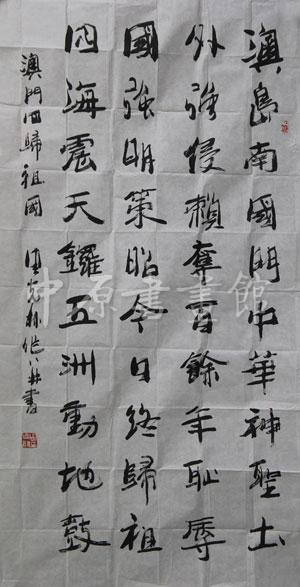 澳島南國門中華神聖土
外強侵賴奪百餘年恥辱
國強明策昭今日終歸祖
四海震天鑼五洲動地鼓
澳門回歸祖國
作并書
中原書畫館